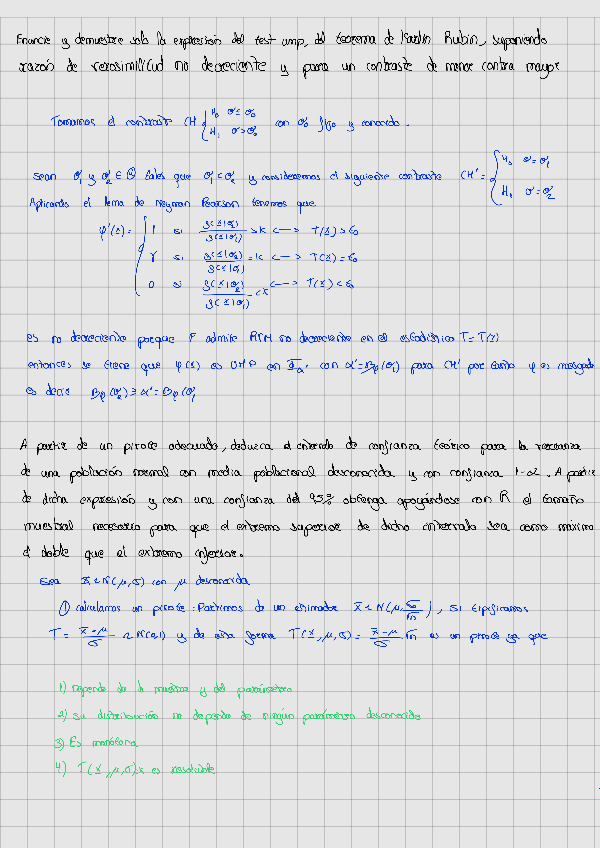 Enuncie y demuestre solo la expresión del test ump, del teorema de Karlin Rubin, suponiendo
razón de verosimilitud no decreciente y para un contraste de menor contra mayor
Tomamos el contraste CH { H₀ σ ≤ σ₀ con σ₀ fijo y conocido.
H₁ σ > σ₀
Sean σ₁ y σ₂ ∈ Θ tales que σ₁ < σ₂ y consideremos el siguiente contraste CH' = { H₀ σ = σ₁
H₁ σ = σ₂
Aplicando el lema de Neyman Pearson tenemos que
φ'(x) = { 1 si g(x|σ₂)/g(x|σ₁) > k <--> T(x) > t₀
γ si g(x|σ₂)/g(x|σ₁) = k <--> T(x) = t₀
0 si g(x|σ₂)/g(x|σ₁) < k <--> T(x) < t₀
es no decreciente porque F admite RVM no decreciente en el estadístico T = T(x)
entonces se tiene que φ(x) es UMP en Φα' con α' = βφ(σ₁) para CH' por tanto φ es insesgado
es decir βφ(σ₂) ≥ α' = βφ(σ₁)
A partir de un pivote adecuado, deduzca el intervalo de confianza teórico para la varianza
de una población normal con media poblacional desconocida y con confianza 1-α. A partir
de dicha expresión y con una confianza del 95% obtenga apoyándose con R el tamaño
muestral necesario para que el extremo superior de dicho intervalo sea como máximo
el doble que el extremo inferior.
Sea X ~ N(μ,σ) con μ desconocida
① calculamos un pivote: Partimos de un estimador x̄ ~ N(μ, σ/√n), si tipificamos
T = x̄-μ/σ ~ N(0,1) y de esta forma T(x,μ,σ) = x̄-μ/σ √n es un pivote ya que
1) Depende de la muestra y del parámetro
2) su distribución no depende de ningún parámetro desconocido
3) Es monótona
4) T(x,μ,σ)=x es resoluble